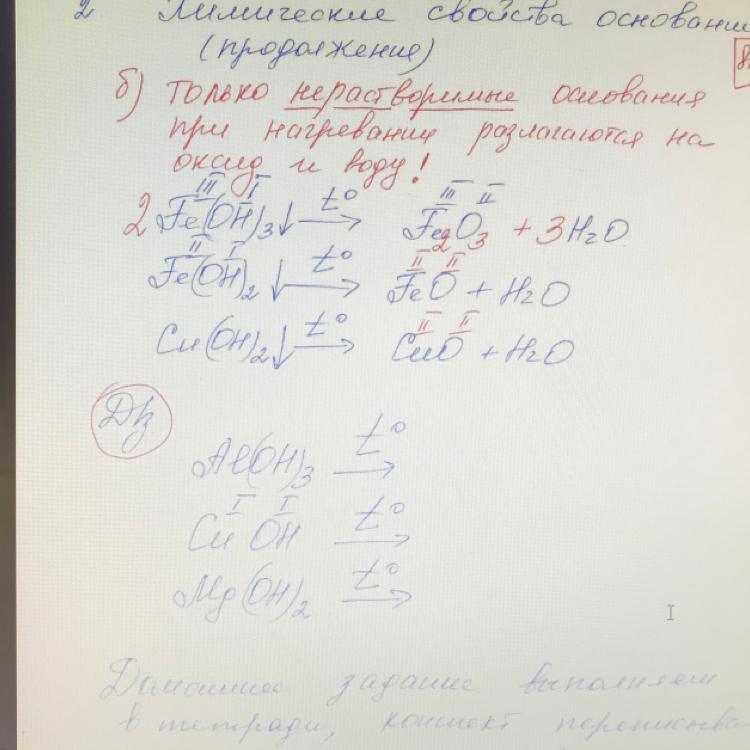 2 Химические свойства основани
(продолжение)
б) только нерастворимые основания
при нагревании разлагаются на
оксид и воду!
III I III II
2 Fe(OH)₃↓ t° → Fe₂O₃ + 3H₂O
II I II II
Fe(OH)₂↓ t° → FeO + H₂O
II II
Cu(OH)₂↓ t° → CuO + H₂O
Dз
Al(OH)₃ t° →
I I
Cu OH t° →
Mg(OH)₂ t° →
Домашнее задание выполняем
в тетради, конспект переписыва